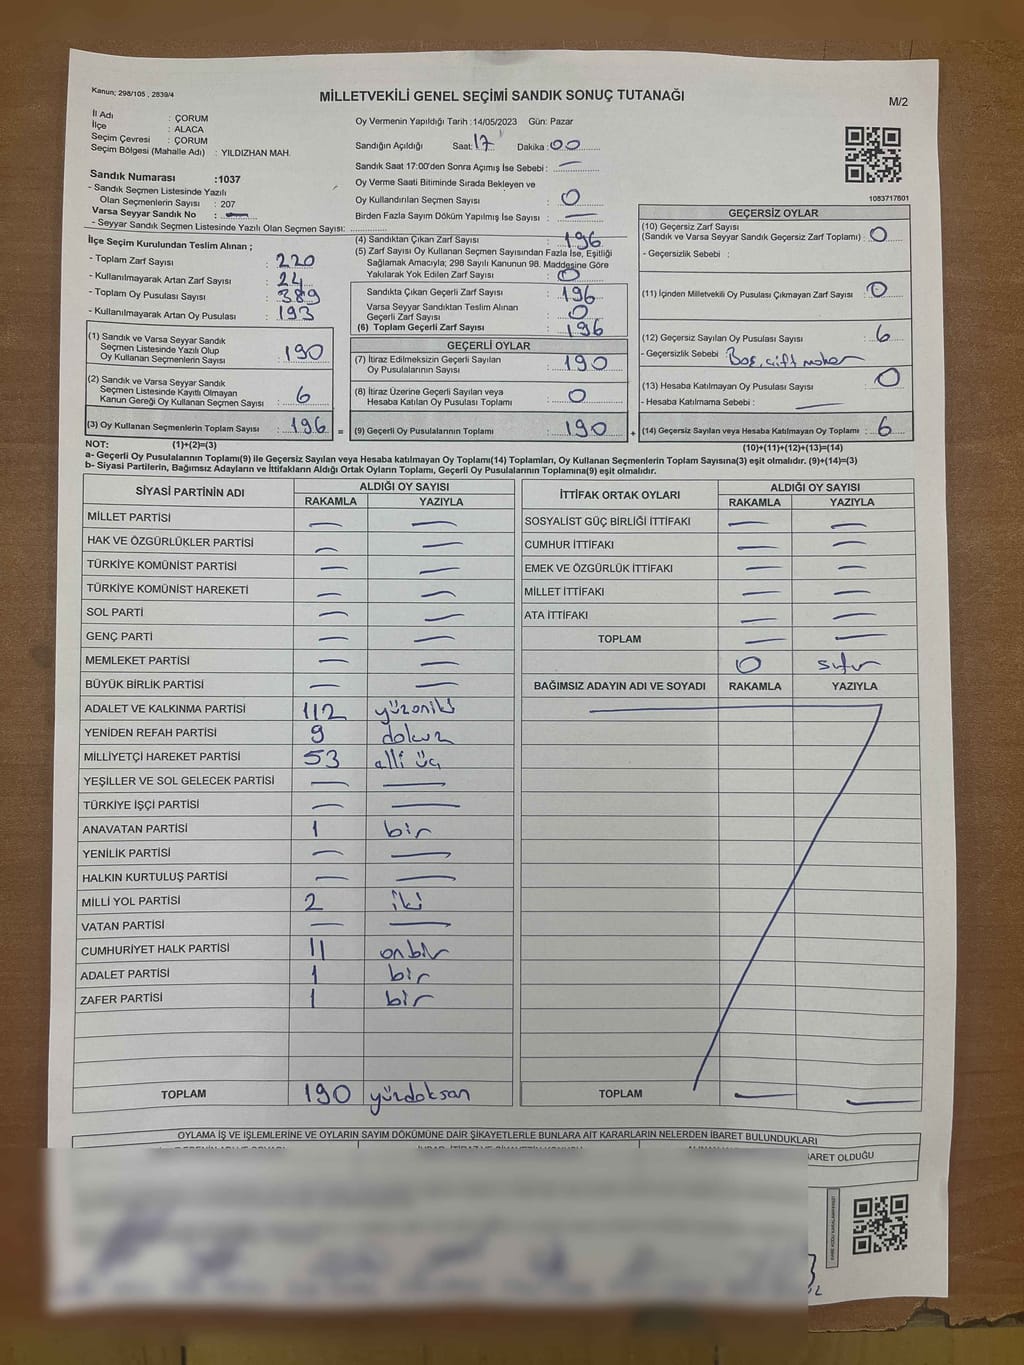 Kanun; 298/105 , 2839/4
MİLLETVEKİLİ GENEL SEÇİMİ SANDIK SONUÇ TUTANAĞI
M/2
İl Adı : ÇORUM
İlçe : ALACA
Seçim Çevresi : ÇORUM
Seçim Bölgesi (Mahalle Adı) : YILDIZHAN MAH.
Sandık Numarası :1037
- Sandık Seçmen Listesinde Yazılı
Olan Seçmenlerin Sayısı : 207
Varsa Seyyar Sandık No : —
- Seyyar Sandık Seçmen Listesinde Yazılı Olan Seçmen Sayısı:
Oy Vermenin Yapıldığı Tarih :14/05/2023 Gün: Pazar
Sandığın Açıldığı Saat: 17 Dakika: 00
Sandık Saat 17:00'den Sonra Açımış İse Sebebi : —
Oy Verme Saati Bitiminde Sırada Bekleyen ve
Oy Kullandırılan Seçmen Sayısı : 0
Birden Fazla Sayım Döküm Yapılmış İse Sayısı : —
1083717801
İlçe Seçim Kurulundan Teslim Alınan ;
- Toplam Zarf Sayısı : 220
- Kullanılmayarak Artan Zarf Sayısı : 24
- Toplam Oy Pusulası Sayısı : 389
- Kullanılmayarak Artan Oy Pusulası : 193
(1) Sandık ve Varsa Seyyar Sandık
Seçmen Listesinde Yazılı Olup
Oy Kullanan Seçmenlerin Sayısı : 190
(2) Sandık ve Varsa Seyyar Sandık
Seçmen Listesinde Kayıtlı Olmayan
Kanun Gereği Oy Kullanan Seçmen Sayısı : 6
(3) Oy Kullanan Seçmenlerin Toplam Sayısı : 196 =
(4) Sandıktan Çıkan Zarf Sayısı : 196
(5) Zarf Sayısı Oy Kullanan Seçmen Sayısından Fazla İse, Eşitliği
Sağlamak Amacıyla; 298 Sayılı Kanunun 98. Maddesine Göre
Yakılarak Yok Edilen Zarf Sayısı : 0
Sandıkta Çıkan Geçerli Zarf Sayısı : 196
Varsa Seyyar Sandıktan Teslim Alınan
Geçerli Zarf Sayısı : 0
(6) Toplam Geçerli Zarf Sayısı : 196
GEÇERLİ OYLAR
(7) İtiraz Edilmeksizin Geçerli Sayılan
Oy Pusulalarının Sayısı : 190
(8) İtiraz Üzerine Geçerli Sayılan veya
Hesaba Katılan Oy Pusulası Toplamı : 0
(9) Geçerli Oy Pusulalarının Toplamı : 190 +
GEÇERSİZ OYLAR
(10) Geçersiz Zarf Sayısı
(Sandık ve Varsa Seyyar Sandık Geçersiz Zarf Toplamı) : 0
- Geçersizlik Sebebi :
(11) İçinden Milletvekili Oy Pusulası Çıkmayan Zarf Sayısı : 0
(12) Geçersiz Sayılan Oy Pusulası Sayısı : 6
- Geçersizlik Sebebi Boş, çift mühür
(13) Hesaba Katılmayan Oy Pusulası Sayısı : 0
- Hesaba Katılmama Sebebi : —
(14) Geçersiz Sayılan veya Hesaba Katılmayan Oy Toplamı : 6
NOT: (1)+(2)=(3)
(10)+(11)+(12)+(13)=(14)
a- Geçerli Oy Pusulalarının Toplamı(9) ile Geçersiz Sayılan veya Hesaba katılmayan Oy Toplamı(14) Toplamları, Oy Kullanan Seçmenlerin Toplam Sayısına(3) eşit olmalıdır. (9)+(14)=(3)
b- Siyasi Partilerin, Bağımsız Adayların ve İttifakların Aldığı Ortak Oyların Toplamı, Geçerli Oy Pusulalarının Toplamına(9) eşit olmalıdır.
SİYASİ PARTİNİN ADI ALDIĞI OY SAYISI
RAKAMLA YAZIYLA
MİLLET PARTİSİ — —
HAK VE ÖZGÜRLÜKLER PARTİSİ — —
TÜRKİYE KOMÜNİST PARTİSİ — —
TÜRKİYE KOMÜNİST HAREKETİ — —
SOL PARTİ — —
GENÇ PARTİ — —
MEMLEKET PARTİSİ — —
BÜYÜK BİRLİK PARTİSİ — —
ADALET VE KALKINMA PARTİSİ 112 yüzoniki
YENİDEN REFAH PARTİSİ 9 dokuz
MİLLİYETÇİ HAREKET PARTİSİ 53 elli üç
YEŞİLLER VE SOL GELECEK PARTİSİ — —
TÜRKİYE İŞÇİ PARTİSİ — —
ANAVATAN PARTİSİ 1 bir
YENİLİK PARTİSİ — —
HALKIN KURTULUŞ PARTİSİ — —
MİLLİ YOL PARTİSİ 2 iki
VATAN PARTİSİ — —
CUMHURİYET HALK PARTİSİ 11 onbir
ADALET PARTİSİ 1 bir
ZAFER PARTİSİ 1 bir
TOPLAM 190 yüzdoksan
İTTİFAK ORTAK OYLARI ALDIĞI OY SAYISI
RAKAMLA YAZIYLA
SOSYALİST GÜÇ BİRLİĞİ İTTİFAKI — —
CUMHUR İTTİFAKI — —
EMEK VE ÖZGÜRLÜK İTTİFAKI — —
MİLLET İTTİFAKI — —
ATA İTTİFAKI — —
TOPLAM — —
0 sıfır
BAĞIMSIZ ADAYIN ADI VE SOYADI RAKAMLA YAZIYLA
TOPLAM — —
OYLAMA İŞ VE İŞLEMLERİNE VE OYLARIN SAYIM DÖKÜMÜNE DAİR ŞİKAYETLERLE BUNLARA AİT KARARLARIN NELERDEN İBARET BULUNDUKLARI
BARET OLDUĞU